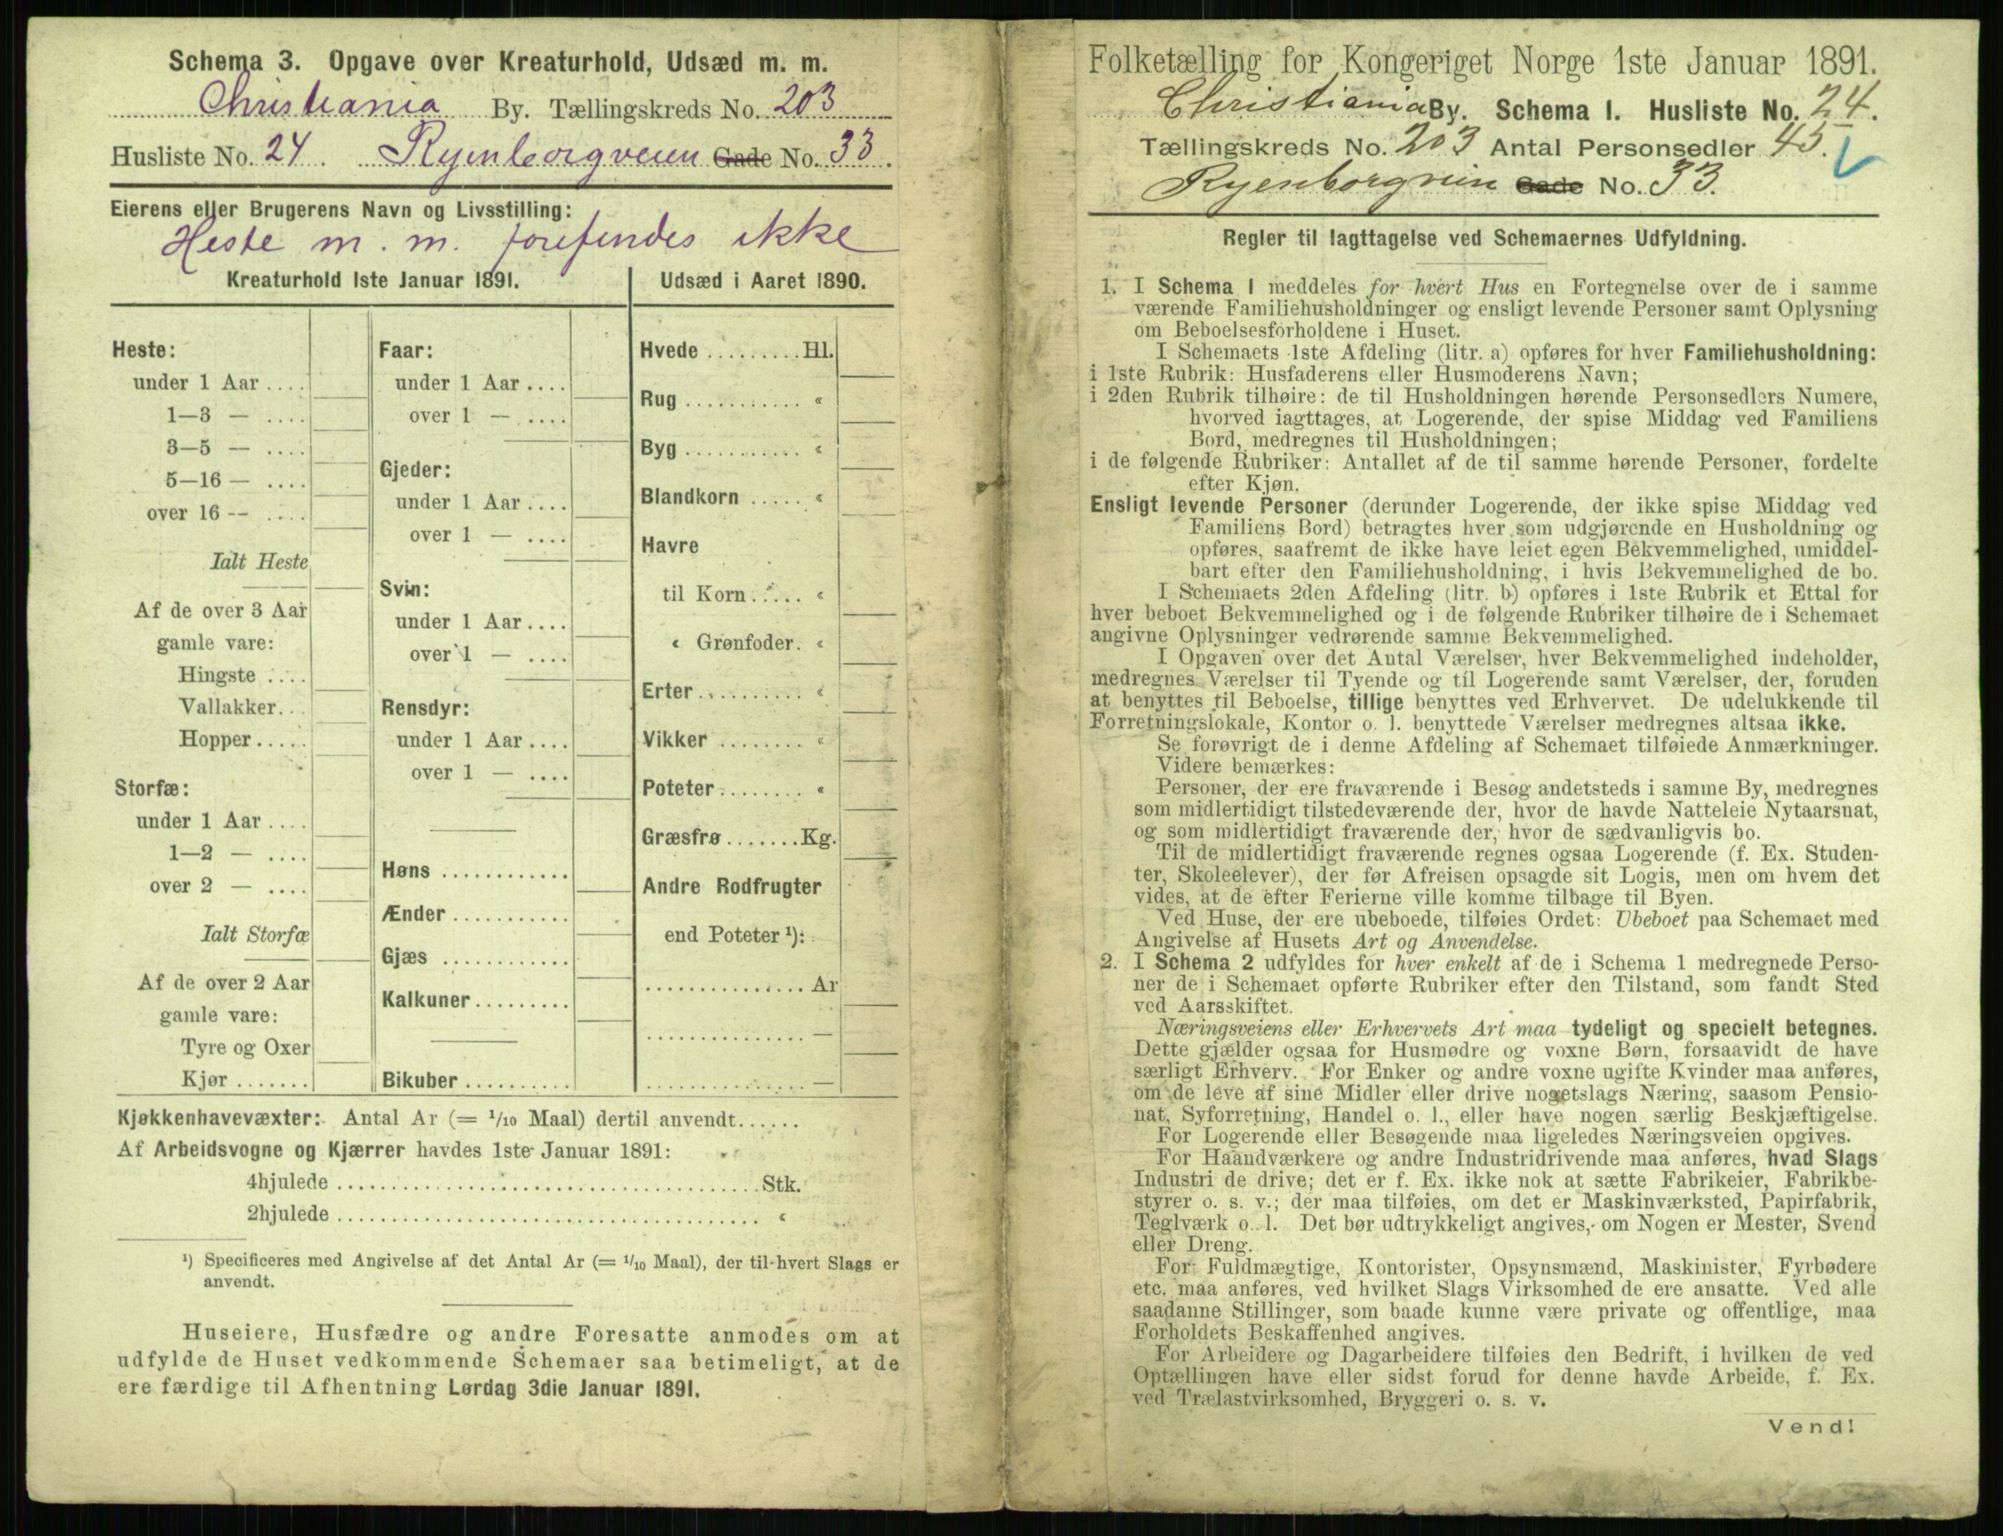 Schema 3. Opgave over Kreaturhold, Udsæd m. m.
Christiania By. Tællingskreds No. 203
Husliste No. 24. Ryenborgveien Gade No. 33.
Eierens eller Brugerens Navn og Livsstilling:
Heste m. m. forefindes ikke
Kreaturhold 1ste Januar 1891.
Heste:
under 1 Aar ....
1—3 — ....
3—5 — ....
5—16 — ....
over 16 -- ....
Ialt Heste
Af de over 3 Aar
gamle vare:
Hingste ....
Vallakker...
Hopper.....
Storfæ:
under 1 Aar ....
1—2 — ....
over 2 — ....
Ialt Storfæ
Af de over 2 Aar
gamle vare:
Tyre og Oxer
Kjør .......
Faar:
under 1 Aar ....
over 1 — ....
Gjeder:
under 1 Aar ....
over 1 — ....
Svin:
under 1 Aar ....
over 1 — ....
Rensdyr:
under 1 Aar ....
over 1 — ....
Høns ............
Ænder ...........
Gjæs ............
Kalkuner.........
Bikuber ..........
Udsæd i Aaret 1890.
Hvede .........Hl.
Rug ........... «
Byg ........... «
Blandkorn ..... «
Havre
til Korn ..... «
« Grønfoder. «
Erter.......... «
Vikker ........ «
Poteter ........ «
Græsfrø .......Kg.
Andre Rodfrugter
end Poteter ¹):
............... Ar
............... —
............... —
Kjøkkenhavevæxter: Antal Ar (= 1/10 Maal) dertil anvendt......
Af Arbeidsvogne og Kjærrer havdes 1ste Januar 1891:
4hjulede ........................................Stk.
2hjulede ........................................ «
¹) Specificeres med Angivelse af det Antal Ar (= 1/10 Maal), der til hvert Slags er
anvendt.
Huseiere, Husfædre og andre Foresatte anmodes om at
udfylde de Huset vedkommende Schemaer saa betimeligt, at de
ere færdige til Afhentning Lørdag 3die Januar 1891.
Folketælling for Kongeriget Norge 1ste Januar 1891.
Christiania By. Schema I. Husliste No. 24.
Tællingskreds No. 203 Antal Personsedler 45.
Ryenborgveien Gade No. 33.
Regler til Iagttagelse ved Schemaernes Udfyldning.
1. I Schema I meddeles for hvert Hus en Fortegnelse over de i samme
værende Familiehusholdninger og ensligt levende Personer samt Oplysning
om Beboelsesforholdene i Huset.
I Schemaets 1ste Afdeling (litr. a) opføres for hver Familiehusholdning:
i 1ste Rubrik: Husfaderens eller Husmoderens Navn;
i 2den Rubrik tilhøire: de til Husholdningen hørende Personsedlers Numere,
hvorved iagttages, at Logerende, der spise Middag ved Familiens
Bord, medregnes til Husholdningen;
i de følgende Rubriker: Antallet af de til samme hørende Personer, fordelte
efter Kjøn.
Ensligt levende Personer (derunder Logerende, der ikke spise Middag ved
Familiens Bord) betragtes hver som udgjørende en Husholdning og
opføres, saafremt de ikke have leiet egen Bekvemmelighed, umiddel-
bart efter den Familiehusholdning, i hvis Bekvemmelighed de bo.
I Schemaets 2den Afdeling (litr. b) opføres i 1ste Rubrik et Ettal for
hver beboet Bekvemmelighed og i de følgende Rubriker tilhøire de i Schemaet
angivne Oplysninger vedrørende samme Bekvemmelighed.
I Opgaven over det Antal Værelser, hver Bekvemmelighed indeholder,
medregnes Værelser til Tyende og til Logerende samt Værelser, der, foruden
at benyttes til Beboelse, tillige benyttes ved Erhvervet. De udelukkende til
Forretningslokale, Kontor o. l. benyttede Værelser medregnes altsaa ikke.
Se forøvrigt de i denne Afdeling af Schemaet tilføiede Anmærkninger.
Videre bemærkes:
Personer, der ere fraværende i Besøg andetsteds i samme By, medregnes
som midlertidigt tilstedeværende der, hvor de havde Natteleie Nytaarsnat,
og som midlertidigt fraværende der, hvor de sædvanligvis bo.
Til de midlertidigt fraværende regnes ogsaa Logerende (f. Ex. Studen-
ter, Skoleelever), der før Afreisen opsagde sit Logis, men om hvem det
vides, at de efter Ferierne ville komme tilbage til Byen.
Ved Huse, der ere ubeboede, tilføies Ordet: Ubeboet paa Schemaet med
Angivelse af Husets Art og Anvendelse.
2. I Schema 2 udfyldes for hver enkelt af de i Schema 1 medregnede Perso-
ner de i Schemaet opførte Rubriker efter den Tilstand, som fandt Sted
ved Aarsskiftet.
Næringsveiens eller Erhvervets Art maa tydeligt og specielt betegnes.
Dette gjælder ogsaa for Husmødre og voxne Børn, forsaavidt de have
særligt Erhverv. For Enker og andre voxne ugifte Kvinder maa anføres,
om de leve af sine Midler eller drive nogetslags Næring, saasom Pensio-
nat, Syforretning, Handel o. l., eller have nogen særlig Beskjæftigelse.
For Logerende eller Besøgende maa ligeledes Næringsveien opgives.
For Haandværkere og andre Industridrivende maa anføres, hvad Slags
Industri de drive; det er f. Ex. ikke nok at sætte Fabrikeier, Fabrikbe-
styrer o. s. v.; der maa tilføies, om det er Maskinværksted, Papirfabrik,
Teglværk o. l. Det bør udtrykkeligt angives, om Nogen er Mester, Svend
eller Dreng.
For Fuldmægtige, Kontorister, Opsynsmænd, Maskinister, Fyrbødere
etc. maa anføres, ved hvilket Slags Virksomhed de ere ansatte. Ved alle
saadanne Stillinger, som baade kunne være private og offentlige, maa
Forholdets Beskaffenhed angives.
For Arbeidere og Dagarbeidere tilføies den Bedrift, i hvilken de ved
Optællingen have eller sidst forud for denne havde Arbeide, f. Ex.
ved Trælastvirksomhed, Bryggeri o. s. v.
Vend!